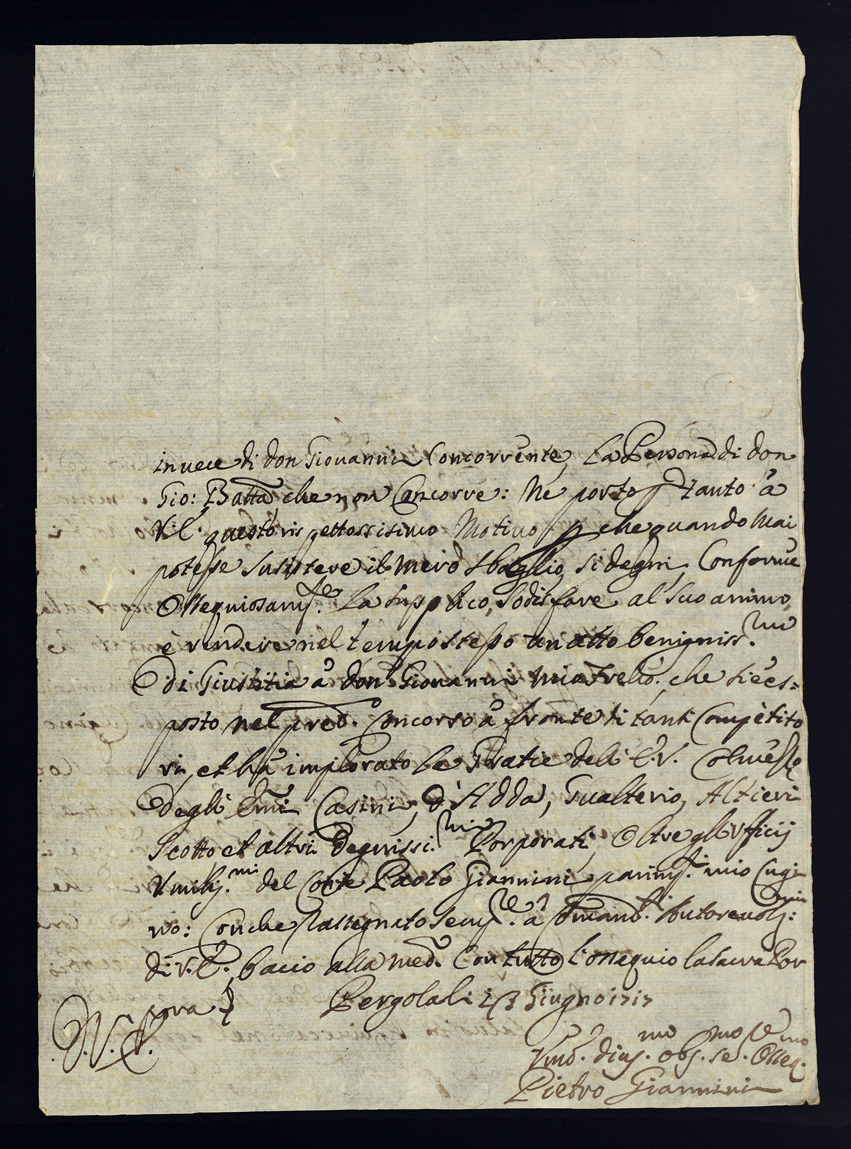 in vece di don Giovanni Concorrente, La Persona di don
Gio: Batta che non Concorre: Ne porto p tanto à
V.E. questo rispettosissimo Motivo p che quando mai
potesse susistere il mero sbaglio, si degni, Conforme
Ossequiosam.te La supplico, sodisfare al suo animo,
è rendere nel tempo stesso un atto benigniss.mo
di Giustitia à don Giovanni mio Frello. che si è es=
posto nel pred.o Concorso à fronte di tanti Competito
ri, et hà implorato le Gratie dell' E.V.
degli Emi Casini, d'Adda, Gualterio, Altieri
Scotto et altri Degnissi.mi Porporati, Oltre gl'Ufficij
Vmiliss.mi del Conte Paolo Giannini parim.te mio Cugi
no: Onde Rassegnato à Comand.i Autorevoliss.mi
di V.E., bacio alla med.a Con tutto l'ossequio la sacra Por
pora
Pergola li 23 Giugno 1717
D.V.E.
Vmo. div.mo obs.mo se.re Osseq.mo
Pietro Giannini